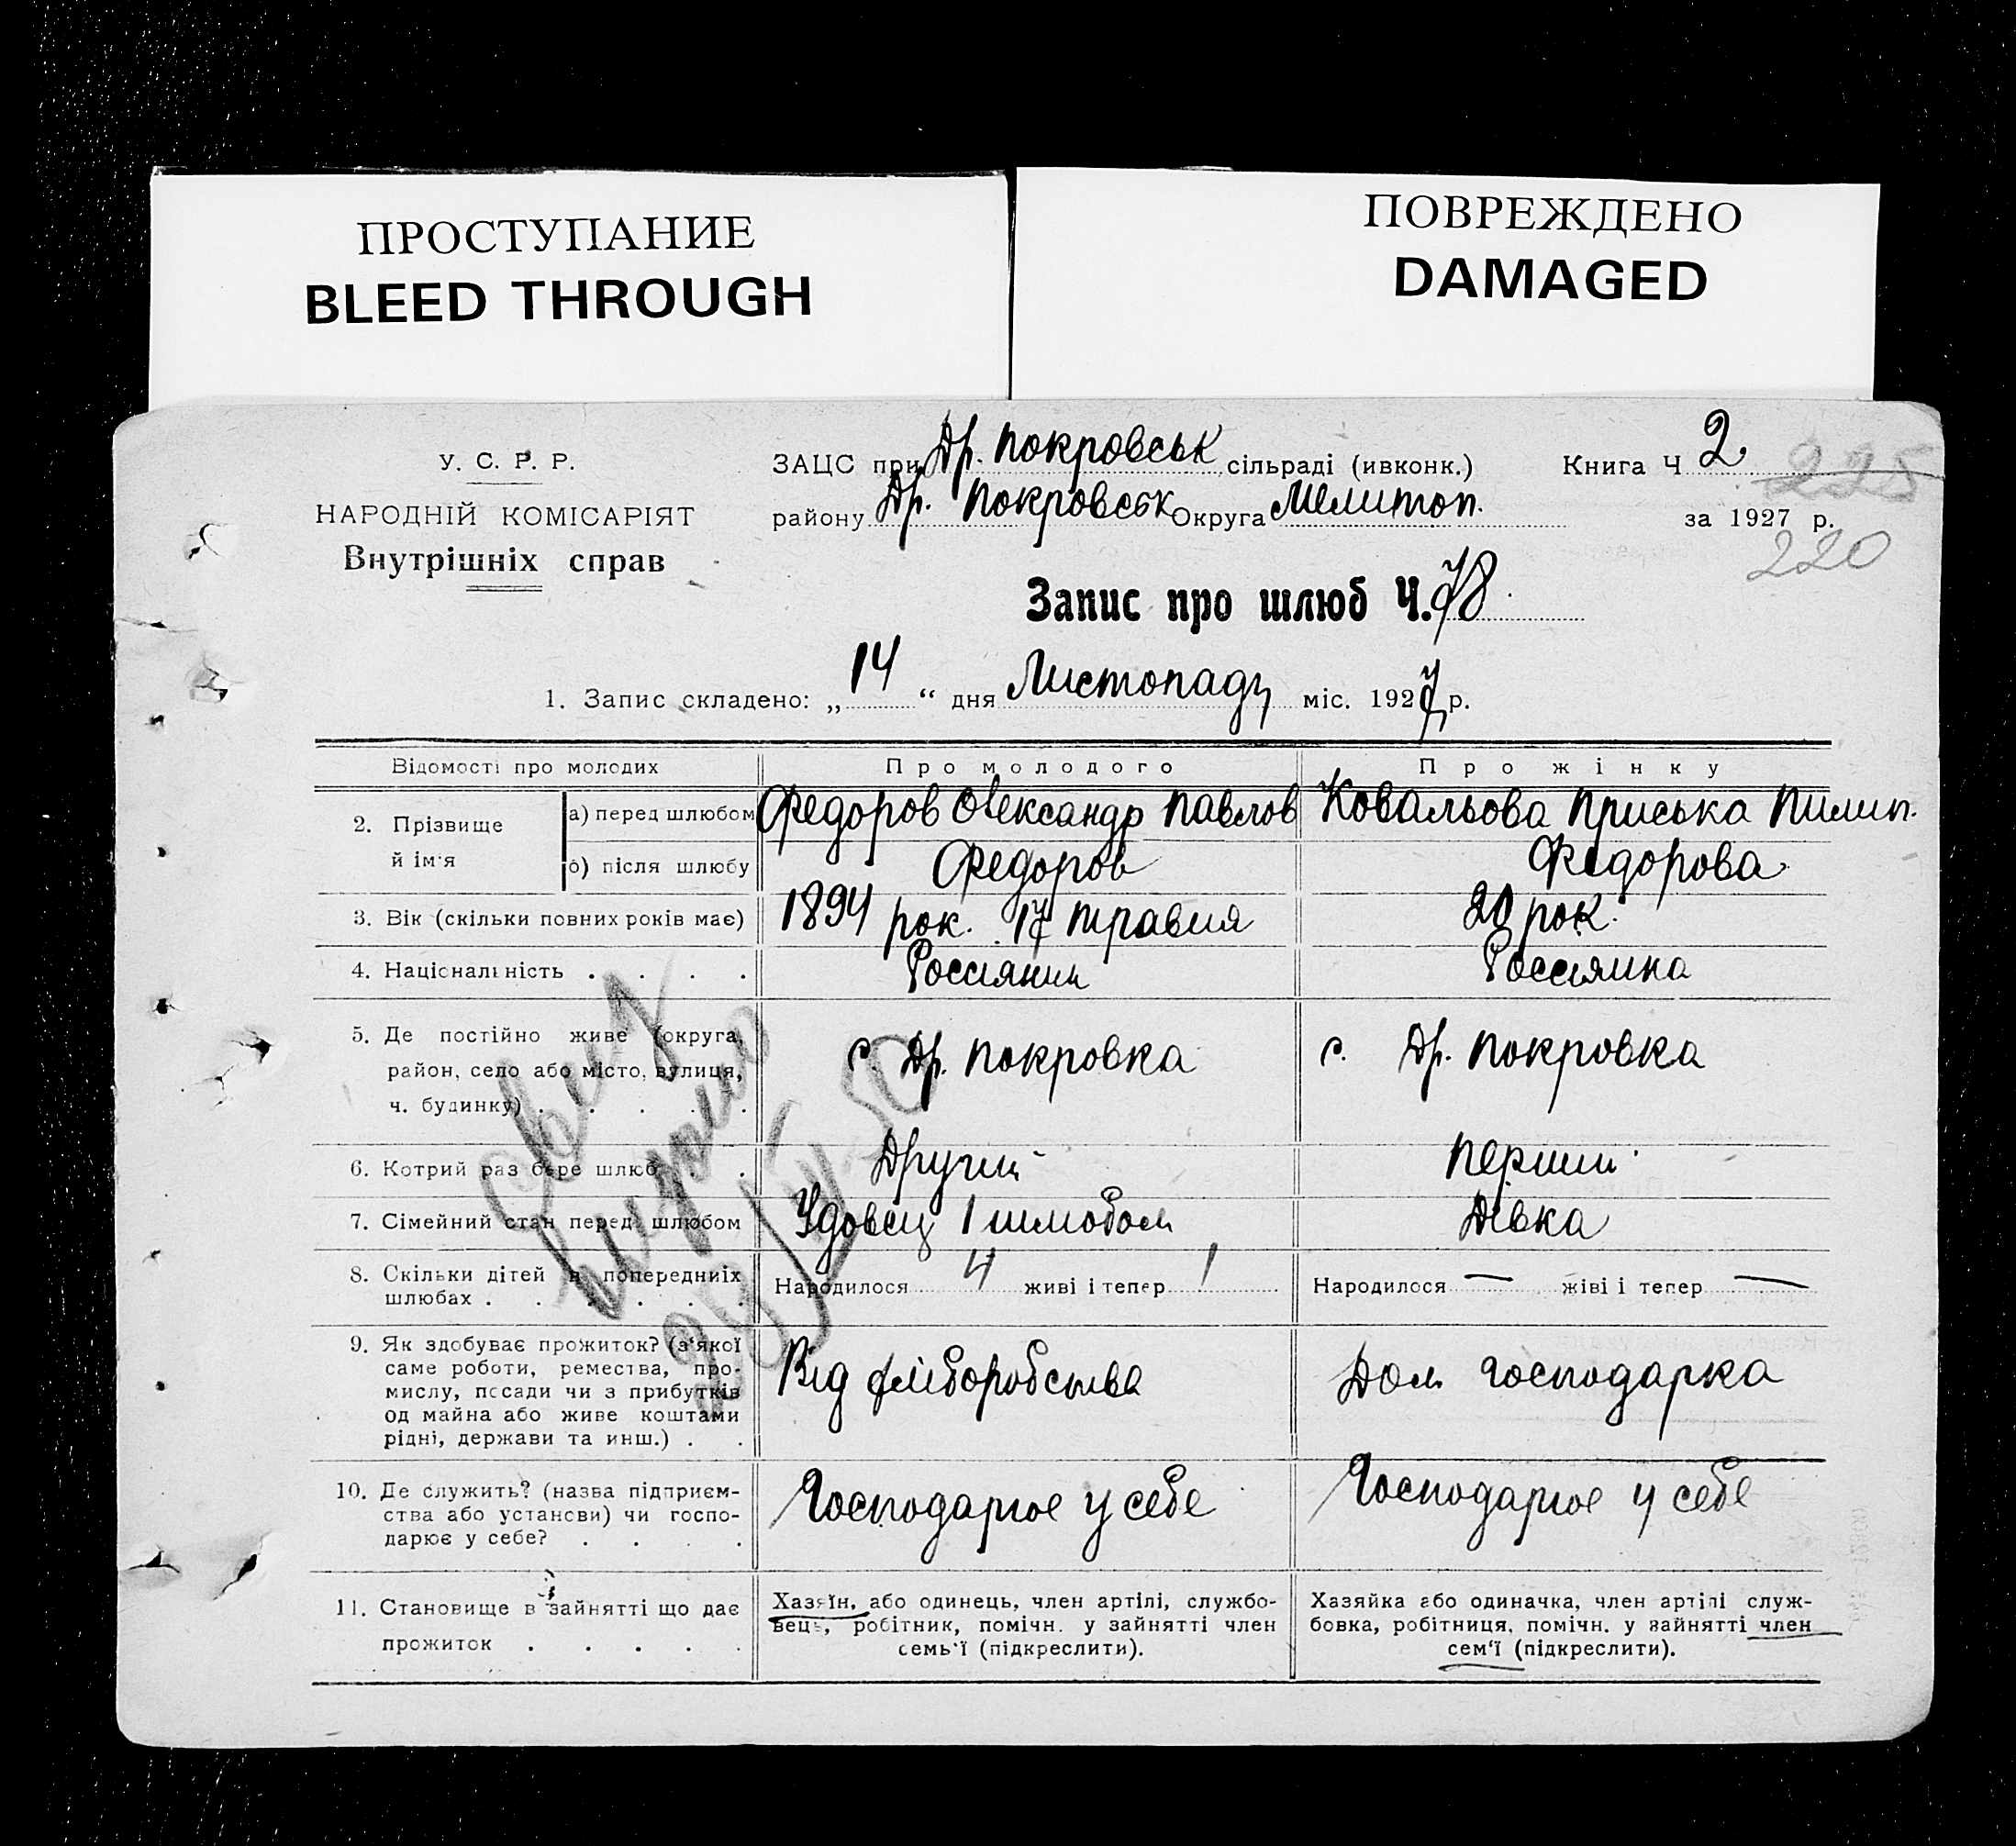 ПРОСТУПАНИЕ
BLEED THROUGH
ПОВРЕЖДЕНО
DAMAGED
У. С. Р. Р.
НАРОДНІЙ КОМІСАРІЯТ
Внутрішніх справ
ЗАЦС при Др. Покровськ сільраді (ивконк.) Книга Ч 2 225
району Др. Покровськ Округа Мелитоп. за 1927 р.
220
Запис про шлюб Ч. 78
1. Запис складено: „ 14 “ дня Листопаду міс. 1927 р.
Відомості про молодих Про молодого Про жінку
2. Прізвище й ім'я а) перед шлюбом Федоров Олександр Павлов Ковальова Приська Пилип.
б) після шлюбу Федоров Федорова
3. Вік (скільки повних років має) 1894 рок. 17 травня 20 рок.
4. Національність . . . . Россіянин Россіянка
5. Де постійно живе (округа,
район, село або місто, вулиця,
ч. будинку) . . . . .
с. Др. Покровка с. Др. Покровка
6. Котрий раз бере шлюб . . Другий Перший
7. Сімейний стан перед шлюбом Удовец 1 шлюбом Дівка
8. Скільки дітей в попередниіх
шлюбах . . . . . .
Народилося 4 живі і тепер 1 Народилося — жіві і тепер —
9. Як здобуває прожиток? (з'якої
саме роботи, ремества, про-
мислу, пссади чи з прибутків
од майна або живе коштами
рідні, держави та инш.) . .
Від хліборобства Дом господарка
10. Де служить? (назва підприєм-
ства або установи) чи госпо-
дарює у себе? . . . .
Господарює у себе Господарює у себе
11. Становище в зайнятті що дає
прожиток . . . . .
Хазяїн, або одинець, член артілі, службо-
вець, робітник, помічн. у зайнятті член
семь'ї (підкреслити).
Хазяйка або одиначка, член артілі служ-
бовка, робітниця, помічн. у зайнятті член
сем'ї (підкреслити).